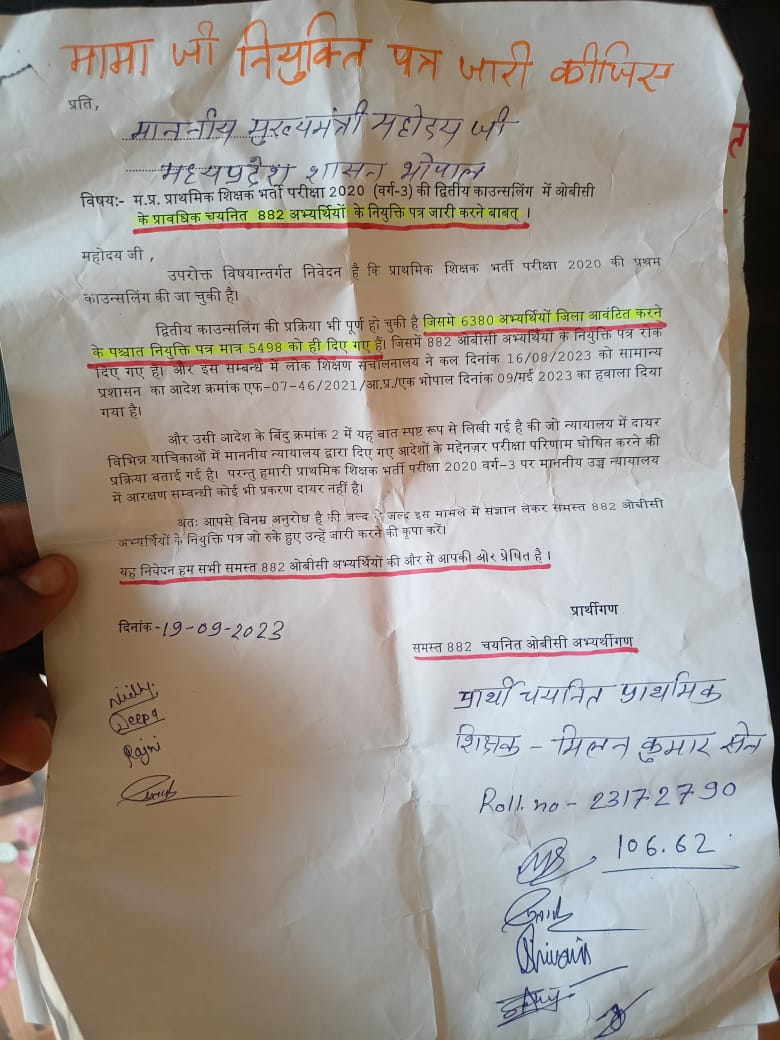 मामा जी नियुक्ति पत्र जारी कीजिए
प्रति,
माननीय मुख्यमंत्री महोदय जी
मध्यप्रदेश शासन भोपाल
विषय:- म.प्र. प्राथमिक शिक्षक भर्ती परीक्षा 2020 (वर्ग-3) की द्वितीय काउन्सलिंग में ओबीसी
के प्रावधिक चयनित 882 अभ्यर्थियों के नियुक्ति पत्र जारी करने बावत् ।
महोदय जी ,
उपरोक्त विषयान्तर्गत निवेदन है कि प्राथमिक शिक्षक भर्ती परीक्षा 2020 की प्रथम
काउन्सलिंग की जा चुकी है।
द्वितीय काउन्सलिंग की प्रक्रिया भी पूर्ण हो चुकी है जिसमे 6380 अभ्यर्थियों जिला आवंटित करने
के पश्चात नियुक्ति पत्र मात्र 5498 को ही दिए गए है। जिसमें 882 ओबीसी अभ्यर्थियों के नियुक्ति पत्र रोक
दिए गए है। और इस सम्बन्ध में लोक शिक्षण संचालनालय ने कल दिनांक 16/08/2023 को सामान्य
प्रशासन का आदेश क्रमांक एफ-07-46/2021/आ.प्र./एक भोपाल दिनांक 09/मई 2023 का हवाला दिया
गया है।
और उसी आदेश के बिंदु क्रमांक 2 में यह बात स्पष्ट रूप से लिखी गई है की जो न्यायालय में दायर
विभिन्न याचिकाओं में माननीय न्यायालय द्वारा दिए गए आदेशों के मद्देनज़र परीक्षा परिणाम घोषित करने की
प्रक्रिया बताई गई है। परन्तु हमारी प्राथमिक शिक्षक भर्ती परीक्षा 2020 वर्ग-3 पर माननीय उच्च न्यायालय
में आरक्षण सम्बन्धी कोई भी प्रकरण दायर नहीं है।
अतः आपसे विनम्र अनुरोध है की जल्द से जल्द इस मामले में संज्ञान लेकर समस्त 882 ओबीसी
अभ्यर्थियों के नियुक्ति पत्र जो रुके हुए उन्हें जारी करने की कृपा करें।
यह निवेदन हम सभी समस्त 882 ओबीसी अभ्यर्थियों की और से आपकी ओर प्रेषित है ।
प्रार्थीगण
दिनांक-19-09-2023
समस्त 882 चयनित ओबीसी अभ्यर्थीगण
प्रार्थी चयनित प्राथमिक
शिक्षक - मिलन कुमार सेन
Roll. no - 23172790
106.62
Deepa
Rajni
Shivani